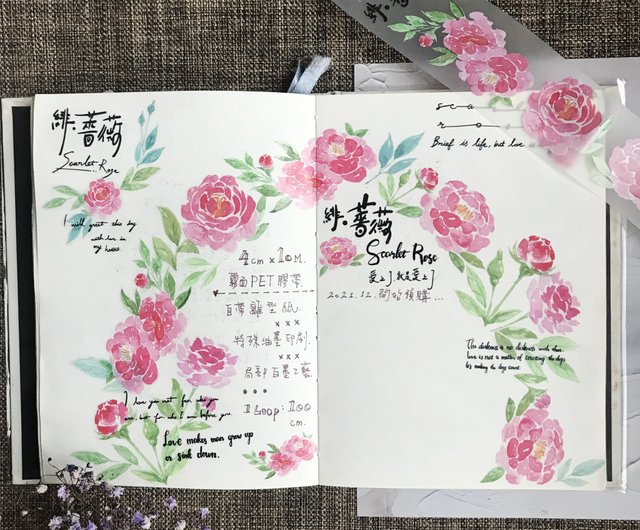 緋.薔薇
Scarlet Rose
I will greet this day
with love in
my heart.
4cm x 10M.
霧面PET膠帶
自帶離型紙
xxx
特殊油墨印刷.
xxx
局部白墨工藝
1 Loop: 100
cm.
I love you not for who you
are, but for who I am before you.
Love makes man grow up
or sink down.
緋.
sca
ro
Brief is life, but love
緋.薔薇
Scarlet Rose
愛上」就是愛上」
2021.12.開始預購...
The darkness is no darkness with thee.
Love is not a matter of counting the days
It's making the days count.